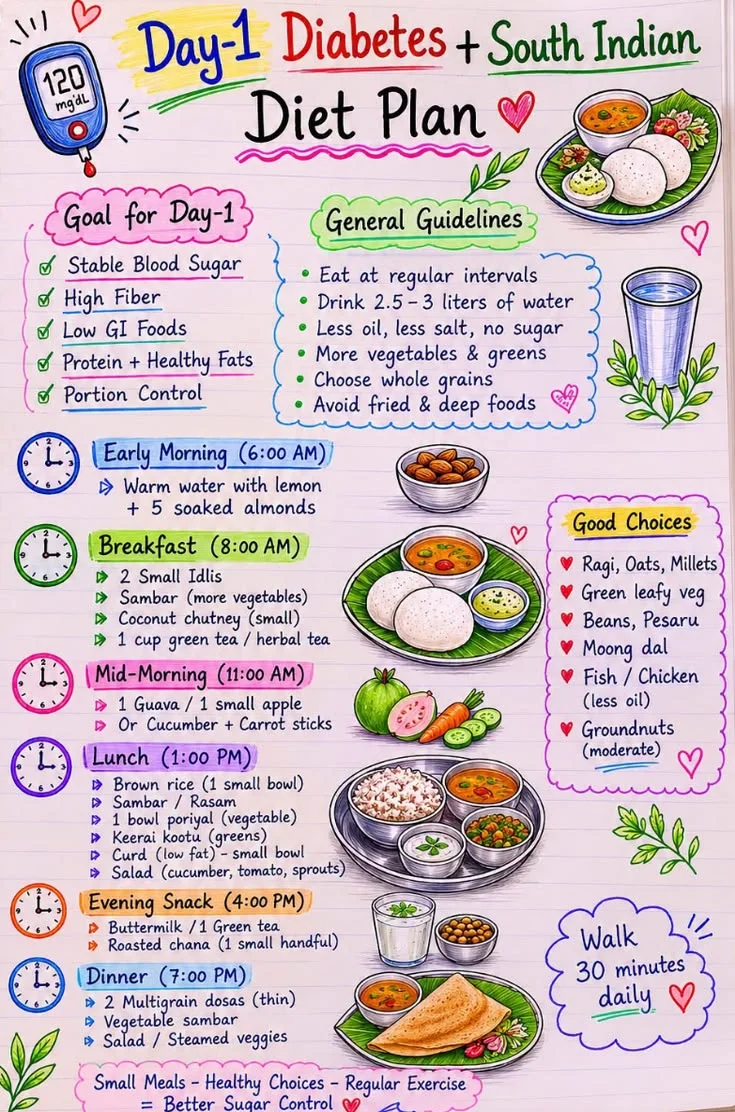 120
mg/dL
Day-1 Diabetes + South Indian
Diet Plan
Goal for Day-1
Stable Blood Sugar
High Fiber
Low GI Foods
Protein + Healthy Fats
Portion Control
General Guidelines
• Eat at regular intervals
• Drink 2.5 – 3 liters of water
• Less oil, less salt, no sugar
• More vegetables & greens
• Choose whole grains
• Avoid fried & deep foods
Early Morning (6:00 AM)
Warm water with lemon
+ 5 soaked almonds
Breakfast (8:00 AM)
2 Small Idlis
Sambar (more vegetables)
Coconut chutney (small)
1 cup green tea / herbal tea
Mid-Morning (11:00 AM)
1 Guava / 1 small apple
Or Cucumber + Carrot sticks
Lunch (1:00 PM)
Brown rice (1 small bowl)
Sambar / Rasam
1 bowl poriyal (vegetable)
Keerai kootu (greens)
Curd (low fat) – small bowl
Salad (cucumber, tomato, sprouts)
Evening Snack (4:00 PM)
Buttermilk / 1 Green tea
Roasted chana (1 small handful)
Dinner (7:00 PM)
2 Multigrain dosas (thin)
Vegetable sambar
Salad / Steamed veggies
Good Choices
Ragi, Oats, Millets
Green leafy veg
Beans, Pesaru
Moong dal
Fish / Chicken
(less oil)
Groundnuts
(moderate)
Walk
30 minutes
daily
Small Meals – Healthy Choices – Regular Exercise
= Better Sugar Control